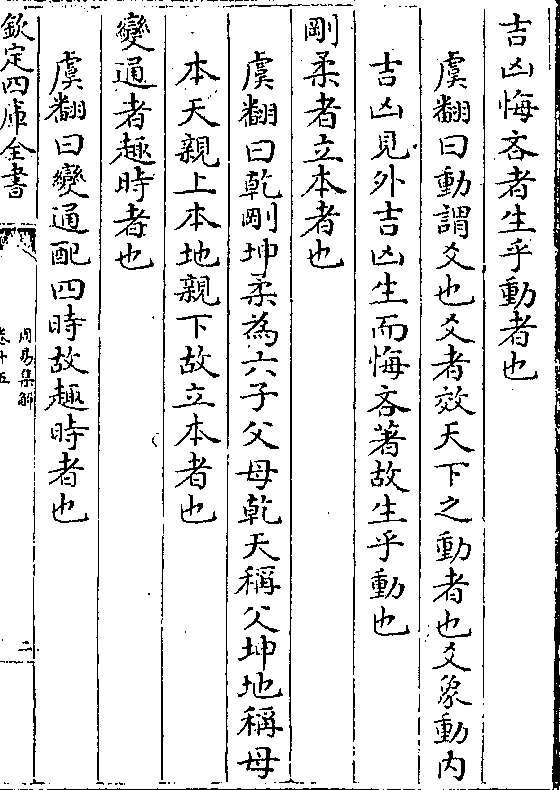 吉凶悔吝者生乎動者也
虞翻曰動謂爻也爻者效天下之動者也爻象動内
吉凶見外吉凶生而悔吝著故生乎動也
剛柔者立本者也
虞翻曰乾剛坤柔為六子父母乾天稱父坤地稱母
本天親上本地親下故立本者也
變通者趣時者也
虞翻曰變通配四時故趣時者也
欽定四庫全書
周易集解
卷十五
二